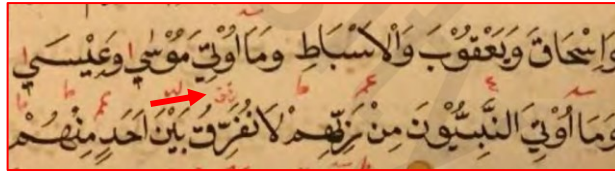 وَاِسْحَاقَ وَيَعْقُوْبَ وَالْاَسْبَاطِ وَمَٓا اُوْتِيَ مُوْسٰى وَعِيْسٰى
وَمَٓا اُوْتِيَ النَّبِيُّوْنَ مِنْ رَبِّهِمْ لَا نُفَرِّقُ بَيْنَ اَحَدٍ مِنْهُمْ